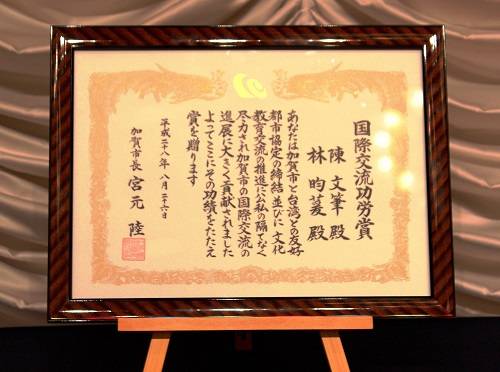 国際交流功労賞
陳文筆殿
林昀萲殿
あなたは加賀市と台湾との友好
都市協定の締結並びに文化
教育交流の推進に公私の隔てなく
尽力され加賀市の国際交流の
進展に大きく貢献されました
よってここにその功績をたたえ
賞を贈ります
平成二十八年八月二十六日
加賀市長 宮元陸